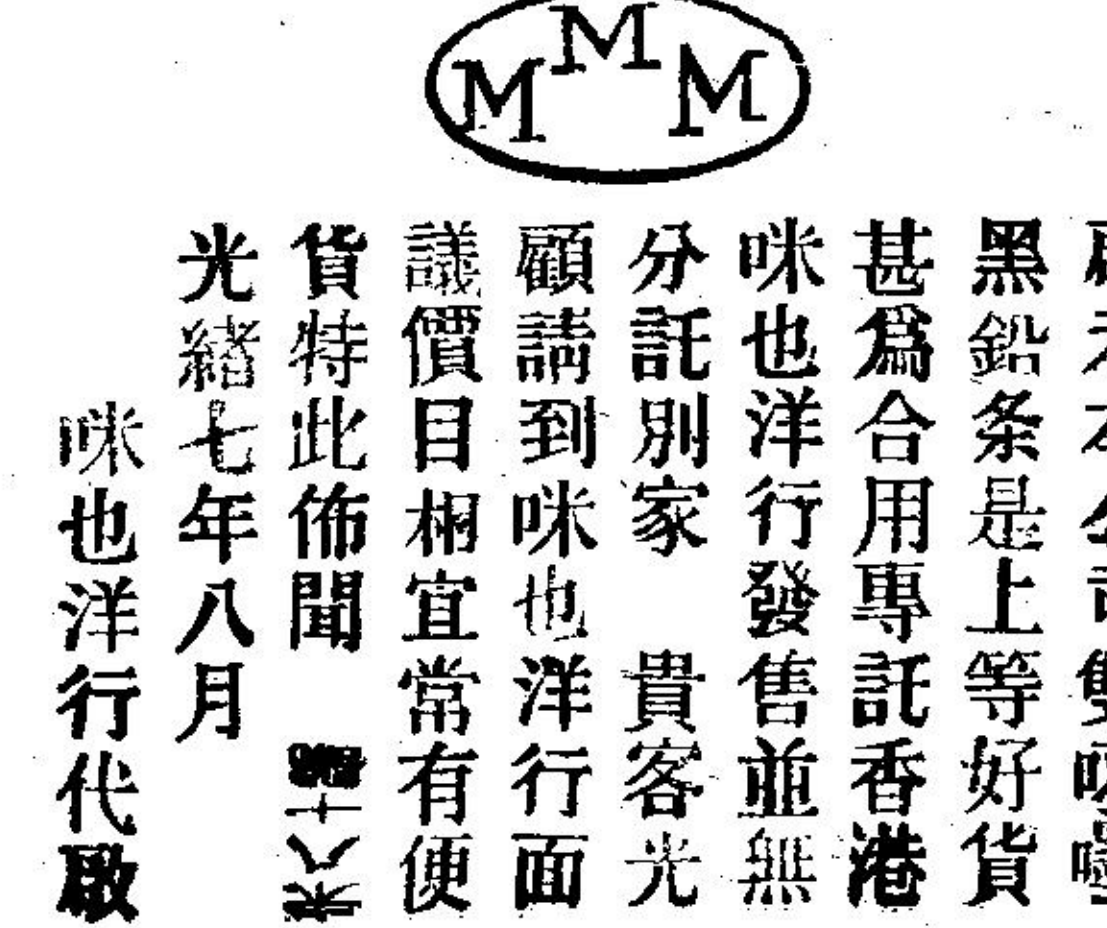 M M M
黑鉛条是上等好貨
甚爲合用專託香港
咪也洋行發售並無
分託別家 貴客光
顧請到咪也洋行面
議價目相宜常有便
貨特此佈聞
光緒七年八月
咪也洋行代啟